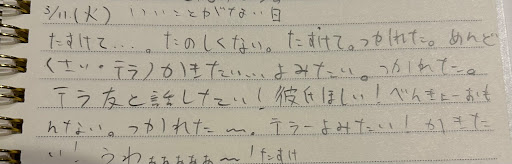 3/11.(火) いいことがない日
たすけて...。たのしくない。たすけて。つかれた。めんど
くさい・テラ)かきたい...よみたい。つかれた。
テラ友と話したい!彼氏ほしい!べんきょーおも
んない。つかれた〜。テラーよみたい!かきた
い!うわぁぁぁぁぁ〜!たすけ